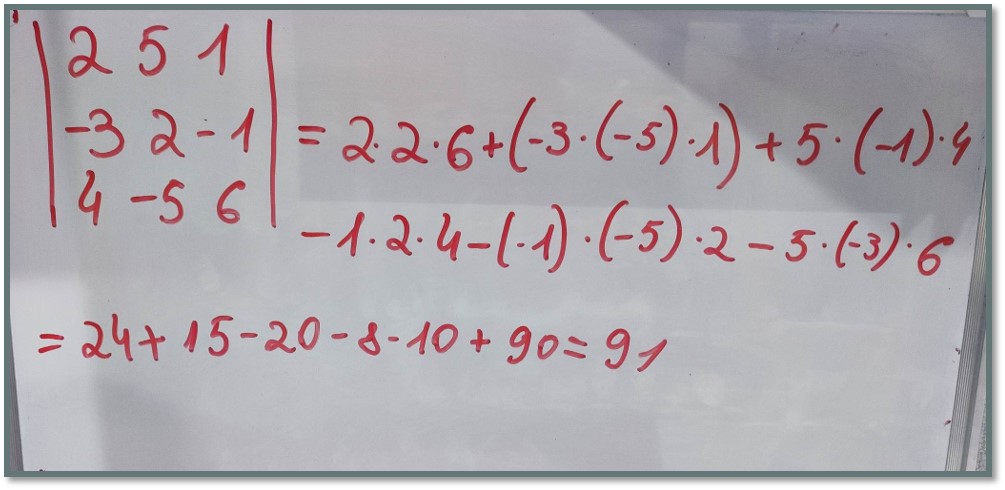 | 2 5 1 |
| -3 2 -1 | = 2·2·6+(-3·(-5)·1)+5·(-1)·4
| 4 -5 6 |
-1·2·4-(-1)·(-5)·2-5·(-3)·6
= 24+15-20-8-10+90=91